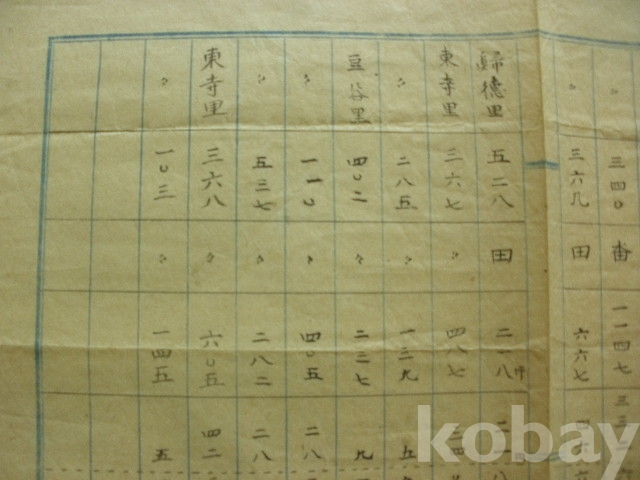 〃 三四〇 畓 一一四七 三三
〃 三六九 田 六六七
歸德里 五二八 田 二一八坪
東寺里 三六七 〃 四八七
〃 二八五 〃 一三九 五
豆谷里 四〇二 〃 二三七 九
〃 一一〇 〃 四〇五 二八
〃 五三七 〃 二八二 二八
東寺里 三六八 〃 六〇五 四二
〃 一〇三 〃 一四五 五
kobay